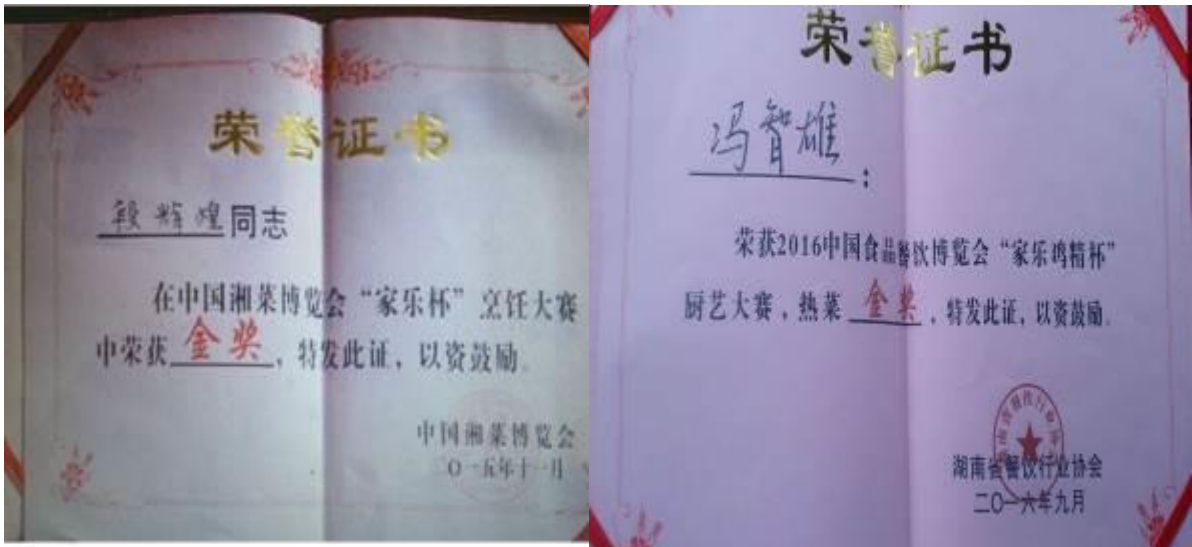 荣誉证书
段辉煌同志
在中国湘菜博览会“家乐杯”烹饪大赛
中荣获金奖，特发此证，以资鼓励。
中国湘菜博览会
二〇一五年十一月
荣誉证书
冯智雄：
荣获2016中国食品餐饮博览会“家乐鸡精杯”
厨艺大赛，热菜金奖，特发此证，以资鼓励。
湖南省餐饮行业协会
二〇一六年九月